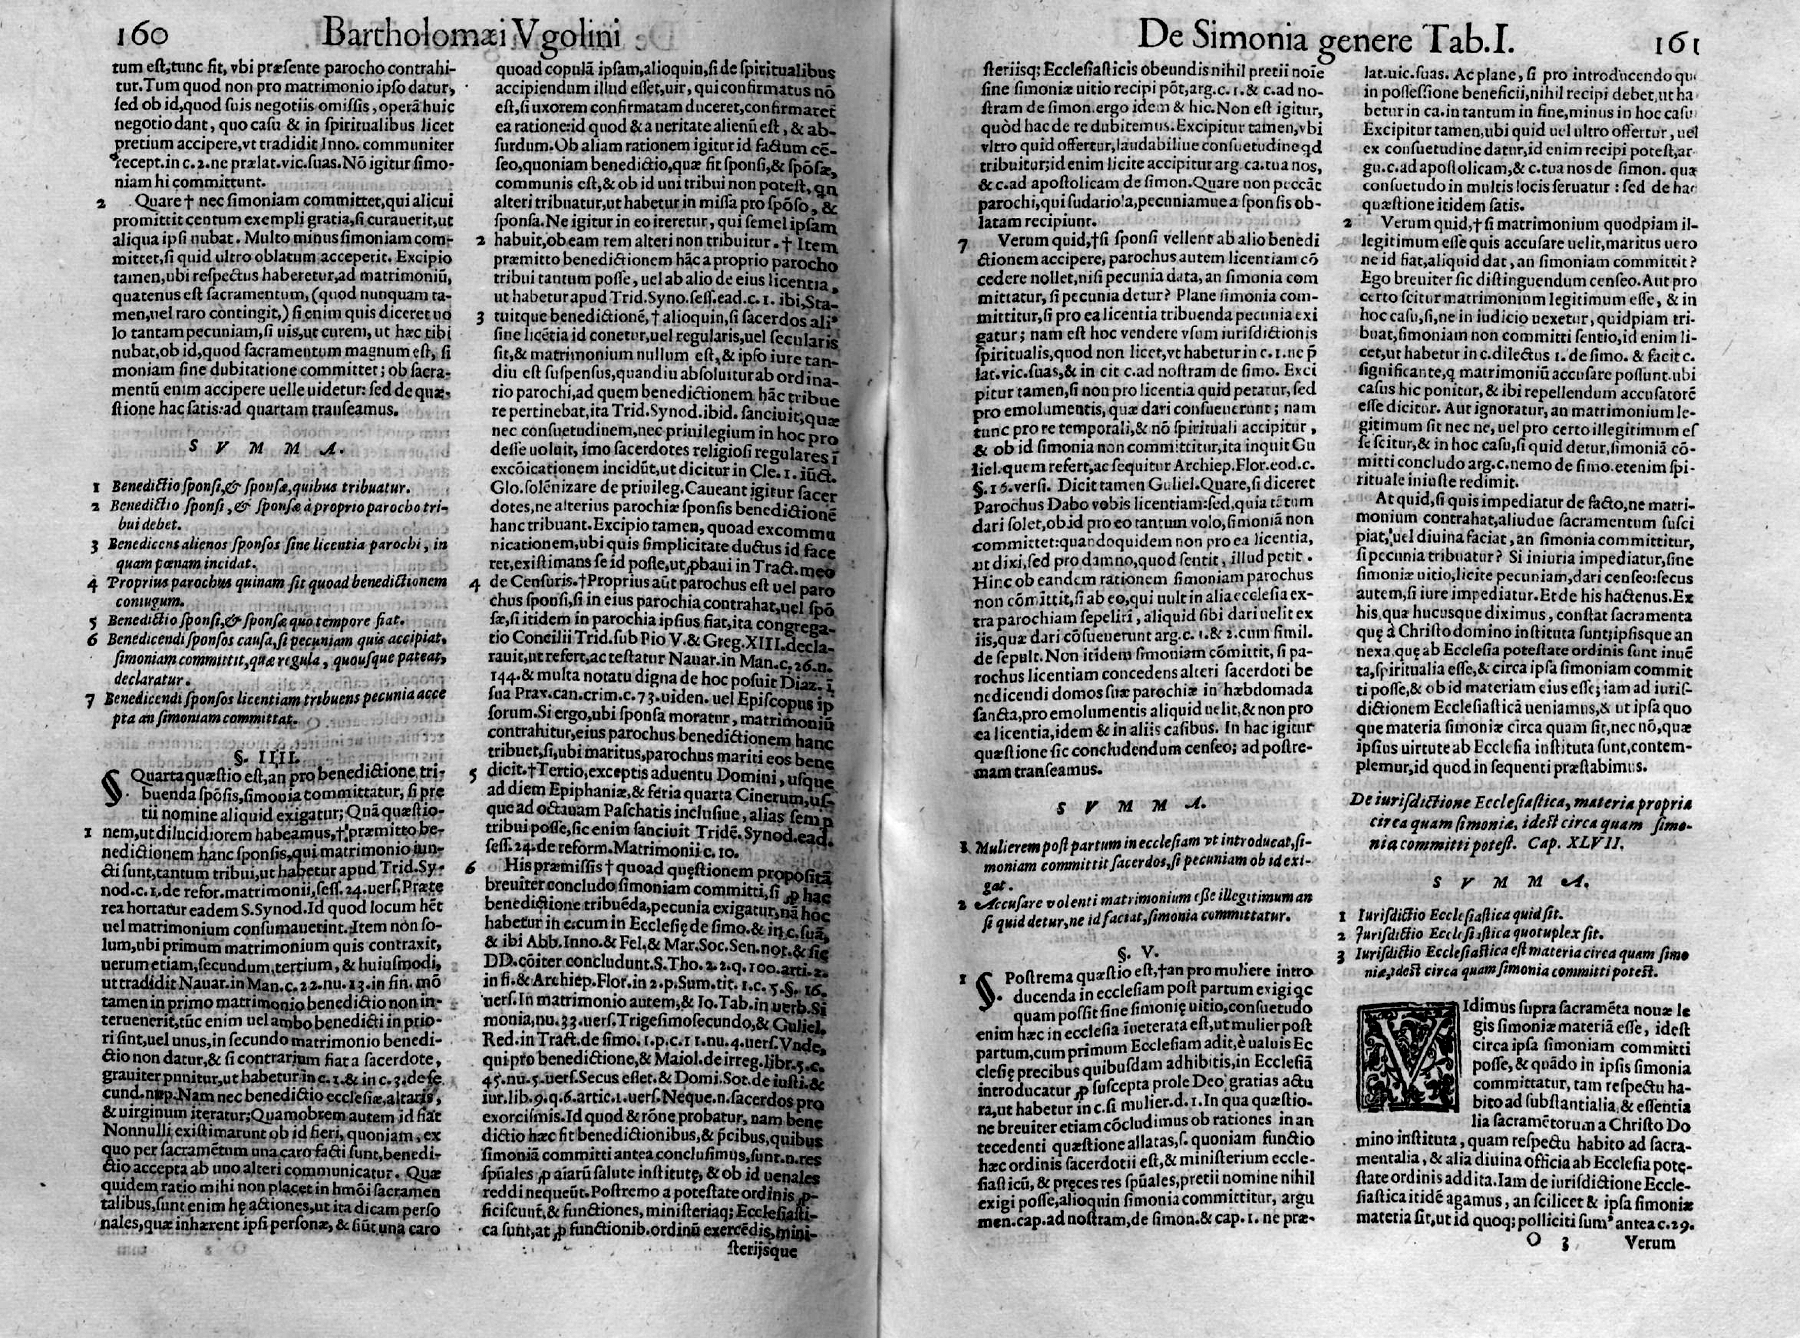 160 Bartholomæi Vgolini
tum est, tunc fit, vbi præsente parocho contrahi-
tur. Tum quod non pro matrimonio ipso datur,
sed ob id, quod suis negotiis omissis, operã huic
negotio dant, quo casu & in spiritualibus licet
pretium accipere, vt tradidit Inno. communiter
recept. in c. 2. ne prælat. vic. suas. Nõ igitur simo-
niam hi committunt.
2 Quare † nec simoniam committet, qui alicui
promittit centum exempli gratia, si curauerit, ut
aliqua ipsi nubat. Multo minus simoniam com-
mittet, si quid ultro oblatum acceperit. Excipio
tamen, ubi respectus haberetur, ad matrimoniũ,
quatenus est sacramentum, (quod nunquam ta-
men, uel raro contingit,) si enim quis diceret uo
lo tantam pecuniam, si uis, ut curem, ut hæc tibi
nubat, ob id, quod sacramentum magnum est, si
moniam sine dubitatione committet; ob sacra-
mentũ enim accipere uelle uidetur: sed de quæ-
stione hac satis: ad quartam transeamus.
S V M M A.
1 Benedictio sponsi, & sponsæ, quibus tribuatur.
2 Benedictio sponsi, & sponsæ à proprio parocho tri-
bui debet.
3 Benedicens alienos sponsos sine licentia parochi, in
quam pœnam incidat.
4 Proprius parochus quinam sit quoad benedictionem
coniugum.
5 Benedictio sponsi, & sponsæ quo tempore fiat.
6 Benedicendi sponsos causa, si pecuniam quis accipiat,
simoniam committit, quæ regula, quousque pateat,
declaratur.
7 Benedicendi sponsos licentiam tribuens pecunia acce
pta an simoniam committat.
§. IIII.
§. Quarta quæstio est, an pro benedictione tri-
buenda spõsis, simonia committatur, si pre
tii nomine aliquid exigatur; Quã quæstio-
1 nem, ut dilucidiorem habeamus, † præmitto be-
nedictionem hanc sponsis, qui matrimonio iun-
cti sunt, tantum tribui, ut habetur apud Trid. Sy-
nod. c. 1. de refor. matrimonii, sess. 24. uers. Præte
rea hortatur eadem S. Synod. Id quod locum hẽt
uel matrimonium consumauerint. Item non so-
lum, ubi primum matrimonium quis contraxit,
uerum etiam, secundum, tertium, & huiusmodi,
ut tradidit Nauar. in Man. c. 22. nu. 13. in fin. mõ
tamen in primo matrimonio benedictio non in-
teruenerit, tũc enim uel ambo benedicti in prio-
ri sint, uel unus, in secundo matrimonio benedi-
ctio non datur, & si contrarium fiat a sacerdote,
grauiter punitur, ut habetur in c. 1. & in c. 3. de se
cund. nup. Nam nec benedictio ecclesiæ, altaris,
& uirginum iteratur; Quamobrem autem id fiat
Nonnulli existimarunt ob id fieri, quoniam, ex
quo per sacramẽtum una caro facti sunt, benedi-
ctio accepta ab uno alteri communicatur. Quæ
quidem ratio mihi non placet in hmõi sacramen
talibus, sunt enim hę actiones, ut ita dicam perso
nales, quæ inhærent ipsi personæ, & siũt una caro
quoad copulã ipsam, alioquin, si de spiritualibus
accipiendum illud esset, uir, qui confirmatus nõ
est, si uxorem confirmatam duceret, confirmaret
ea ratione: id quod & a ueritate alienũ est, & ab-
surdum. Ob aliam rationem igitur id factum cẽ-
seo, quoniam benedictio, quæ fit sponsi, & spõsæ,
communis est, & ob id uni tribui non potest, qn
alteri tribuatur, ut habetur in missa pro spõso, &
sponsa. Ne igitur in eo iteretur, qui semel ipsam
2 habuit, ob eam rem alteri non tribuitur. † Item
præmitto benedictionem hãc a proprio parocho
tribui tantum posse, uel ab alio de eius licentia,
ut habetur apud Trid. Syno. sess. ead. c. 1. ibi, Sta-
3 tuitque benedictionẽ, † alioquin, si sacerdos ali'
sine licẽtia id conetur, uel regularis, uel secularis
sit, & matrimonium nullum est, & ipso iure tan-
diu est suspensus, quandiu absoluitur ab ordina-
rio parochi, ad quem benedictionem hãc tribue
re pertinebat, ita Trid. Synod. ibid. sanciuit; quæ
nec consuetudinem, nec priuilegium in hoc pro
desse uoluit, imo sacerdotes religiosi regulares ĩ
excõicationem incidũt, ut dicitur in Cle. 1. iũct.
Glo. solẽnizare de priuileg. Caueant igitur sacer
dotes, ne alterius parochiæ sponsis benedictionẽ
hanc tribuant. Excipio tamen, quoad excommu
nicationem, ubi quis simplicitate ductus id face
ret, existimans se id posse, ut ꝓbaui in Tract. meo
4 de Censuris. † Proprius aũt parochus est uel paro
chus sponsi, si in eius parochia contrahat, uel spõ
sæ, si itidem in parochia ipsius fiat, ita congrega-
tio Concilii Trid. sub Pio V. & Greg. XIII. decla-
rauit, ut refert, ac testatur Nauar. in Man. c. 26. n.
144. & multa notatu digna de hoc posuit Diaz. ĩ
sua Prax. can. crim. c. 73. uiden. uel Episcopus ip
sorum. Si ergo, ubi sponsa moratur, matrimoniũ
contrahitur, eius parochus benedictionem hanc
tribuet, si, ubi maritus, parochus mariti eos bene
5 dicit. † Tertio, exceptis aduentu Domini, usque
ad diem Epiphaniæ, & feria quarta Cinerum, us-
que ad octauam Paschatis inclusiue, alias semp
tribui posse, sic enim sanciuit Tridẽ. Synod. ead.
sess. 24. de reform. Matrimonii c. 10.
6 His præmissis † quoad quęstionem propositã
breuiter concludo simoniam committi, si ꝓ hac
benedictione tribuẽda, pecunia exigatur, nã hoc
habetur in c. cum in Ecclesię de simo. & in c. suã,
& ibi Abb. Inno. & Fel. & Mar. Soc. Sen. not. & sic
DD. cõiter concludunt. S. Tho. 2. 2. q. 100. arti. 2.
in fi. & Archiep. Flor. in 2. p. Sum. tit. 1. c. 5. §. 16.
uers. In matrimonio autem, & Io. Tab. in uerb. Si
monia, nu. 33. uers. Trigesimosecundo, & Guliel.
Red. in Tract. de simo. 1. p. c. 11. nu. 4. uers. Vnde,
qui pro benedictione, & Maiol. de irreg. libr. 5. c.
45. nu. 5. uers. Secus esset. & Domi. Sot. de iusti. &
iur. lib. 9. q. 6. artic. 1. uers. Neque. n. sacerdos pro
exorcismis. Id quod & rõne probatur, nam bene
dictio hæc fit benedictionibus, & p̃cibus, quibus
simoniã committi antea conclusimus, sunt. n. res
spũales ꝓ aĩarũ salute institutę, & ob id uenales
reddi nequeũt. Postremo a potestate ordinis ꝓ-
ficiscunt, & functiones, ministeriaq; Ecclesiasti-
ca sunt, at ꝓ functionib. ordinũ exercẽdis, mini-
sterijsque
De Simonia genere Tab. I. 161
steriisq; Ecclesiasticis obeundis nihil pretii noĩe
sine simoniæ uitio recipi põt, arg. c. 1. & c. ad no-
stram de simon. ergo idem & hic. Non est igitur,
quòd hac de re dubitemus. Excipitur tamen, vbi
vltro quid offertur, laudabiliue consuetudine qd
tribuitur; id enim licite accipitur arg. ca. tua nos,
& c. ad apostolicam de simon. Quare non peccãt
parochi, qui sudariola, pecuniamue a sponsis ob-
latam recipiunt.
7 Verum quid, † si sponsi vellent ab alio benedi
ctionem accipere, parochus autem licentiam cõ
cedere nollet, nisi pecunia data, an simonia com
mittatur, si pecunia detur? Plane simonia com-
mittitur, si pro ea licentia tribuenda pecunia exi
gatur; nam est hoc vendere vsum iurisdictionis
spiritualis, quod non licet, vt habetur in c. 1. ne p̃
lat. vic. suas, & in cit c. ad nostram de simo. Exci
pitur tamen, si non pro licentia quid petatur, sed
pro emolumentis, quæ dari consueuerunt; nam
tunc pro re temporali, & nõ spirituali accipitur,
& ob id simonia non committitur, ita inquit Gu
liel. quem refert, ac sequitur Archiep. Flor. eod. c.
§. 16. versi. Dicit tamen Guliel. Quare, si diceret
Parochus Dabo vobis licentiam: sed, quia tãtum
dari solet, ob id pro eo tantum volo, simoniã non
committet: quandoquidem non pro ea licentia,
ut dixi, sed pro damno, quod sentit, illud petit.
Hinc ob eandem rationem simoniam parochus
non cõmittit, si ab eo, qui uult in alia ecclesia ex-
tra parochiam sepeliri, aliquid sibi dari uelit ex
iis, quæ dari cõsueuerunt arg. c. 1. & 2. cum simil.
de sepult. Non itidem simoniam cõmittit, si pa-
rochus licentiam concedens alteri sacerdoti be
nedicendi domos suæ parochiæ in hæbdomada
sancta, pro emolumentis aliquid uelit, & non pro
ea licentia, idem & in aliis casibus. In hac igitur
quæstione sic concludendum censeo; ad postre-
mam transeamus.
S V M M A.
1 Mulierem post partum in ecclesiam vt introducat, si-
moniam committit sacerdos, si pecuniam ob id exi-
gat.
2 Accusare volenti matrimonium esse illegitimum an
si quid detur, ne id faciat, simonia committatur.
§. V.
1 §. Postrema quæstio est, † an pro muliere intro
ducenda in ecclesiam post partum exigi qc
quam possit sine simonię uitio, consuetudo
enim hæc in ecclesia inueterata est, ut mulier post
partum, cum primum Ecclesiam adit, è ualuis Ec
clesię precibus quibusdam adhibitis, in Ecclesiã
introducatur ꝓ suscepta prole Deo gratias actu
ra, ut habetur in c. si mulier. d. 1. In qua quæstio-
ne breuiter etiam cõcludimus ob rationes in an
tecedenti quæstione allatas, s. quoniam functio
hæc ordinis sacerdotii est, & ministerium eccle-
siasticũ, & pręces res spũales, pretii nomine nihil
exigi posse, alioquin simonia committitur, argu
men. cap. ad nostram, de simon. & cap. 1. ne præ-
lat. uic. suas. Ac plane, si pro introducendo
in possessione beneficii, nihil recipi debet, ut ha
betur in ca. in tantum in fine, minus in hoc casu
Excipitur tamen, ubi quid uel ultro offertur, uel
ex consuetudine datur, id enim recipi potest, ar
gu. c. ad apostolicam, & c. tua nos de simon. quæ
consuetudo in multis locis seruatur: sed de hac
quæstione itidem satis.
2 Verum quid, † si matrimonium quodpiam il-
legitimum esse quis accusare uelit, maritus uero
ne id fiat, aliquid dat, an simoniam committit?
Ego breuiter sic distinguendum censeo. Aut pro
certo scitur matrimonium legitimum esse, & in
hoc casu, si, ne in iudicio uexetur, quidpiam tri-
buat, simoniam non committi sentio, id enim li-
cet, ut habetur in c. dilectus 1. de simo. & facit c.
significante, q matrimoniũ accusare possunt. ubi
casus hic ponitur, & ibi repellendum accusatorẽ
esse dicitur. Aut ignoratur, an matrimonium le-
gitimum sit nec ne, uel pro certo illegitimum es
se scitur, & in hoc casu, si quid detur, simoniã cõ-
mitti concludo arg. c. nemo de simo. etenim spi-
rituale iniuste redimit.
At quid, si quis impediatur de facto, ne matri-
monium contrahat, aliudue sacramentum susci
piat, uel diuina faciat, an simonia committitur,
si pecunia tribuatur? Si iniuria impediatur, sine
simoniæ uitio, licite pecuniam, dari censeo: secus
autem, si iure impediatur. Et de his hactenus. Ex
his, quæ hucusque diximus, constat sacramenta
quę à Christo domino instituta sunt; ipsisque an
nexa, quę ab Ecclesia potestate ordinis sunt inuẽ
ta, spiritualia esse, & circa ipsa simoniam commit
ti posse, & ob id materiam eius esse; iam ad iuris-
dictionem Ecclesiasticã ueniamus, & ut ipsa quo
que materia simoniæ circa quam sit, nec nõ, quæ
ipsius uirtute ab Ecclesia instituta sunt, contem-
plemur, id quod in sequenti præstabimus.
De iurisdictione Ecclesiastica, materia propria
circa quam simoniæ, idest circa quam simo-
nia committi potest. Cap. XLVII.
S V M M A.
1 Iurisdictio Ecclesiastica quid sit.
2 Iurisdictio Ecclesiastica quotuplex sit.
3 Iurisdictio Ecclesiastica est materia circa quam simo
niæ, idest circa quam simonia committi potest.
VIdimus supra sacramẽta nouæ le
gis simoniæ materiã esse, idest
circa ipsa simoniam committi
posse, & quãdo in ipsis simonia
committatur, tam respectu ha-
bito ad substantialia, & essentia
lia sacramẽtorum a Christo Do
mino instituta, quam respectu habito ad sacra-
mentalia, & alia diuina officia ab Ecclesia potę-
state ordinis addita. Iam de iurisdictione Eccle-
siastica itidẽ agamus, an scilicet & ipsa simoniæ
materia sit, ut id quoq; polliciti sum' antea c. 29.
O 3 Verum